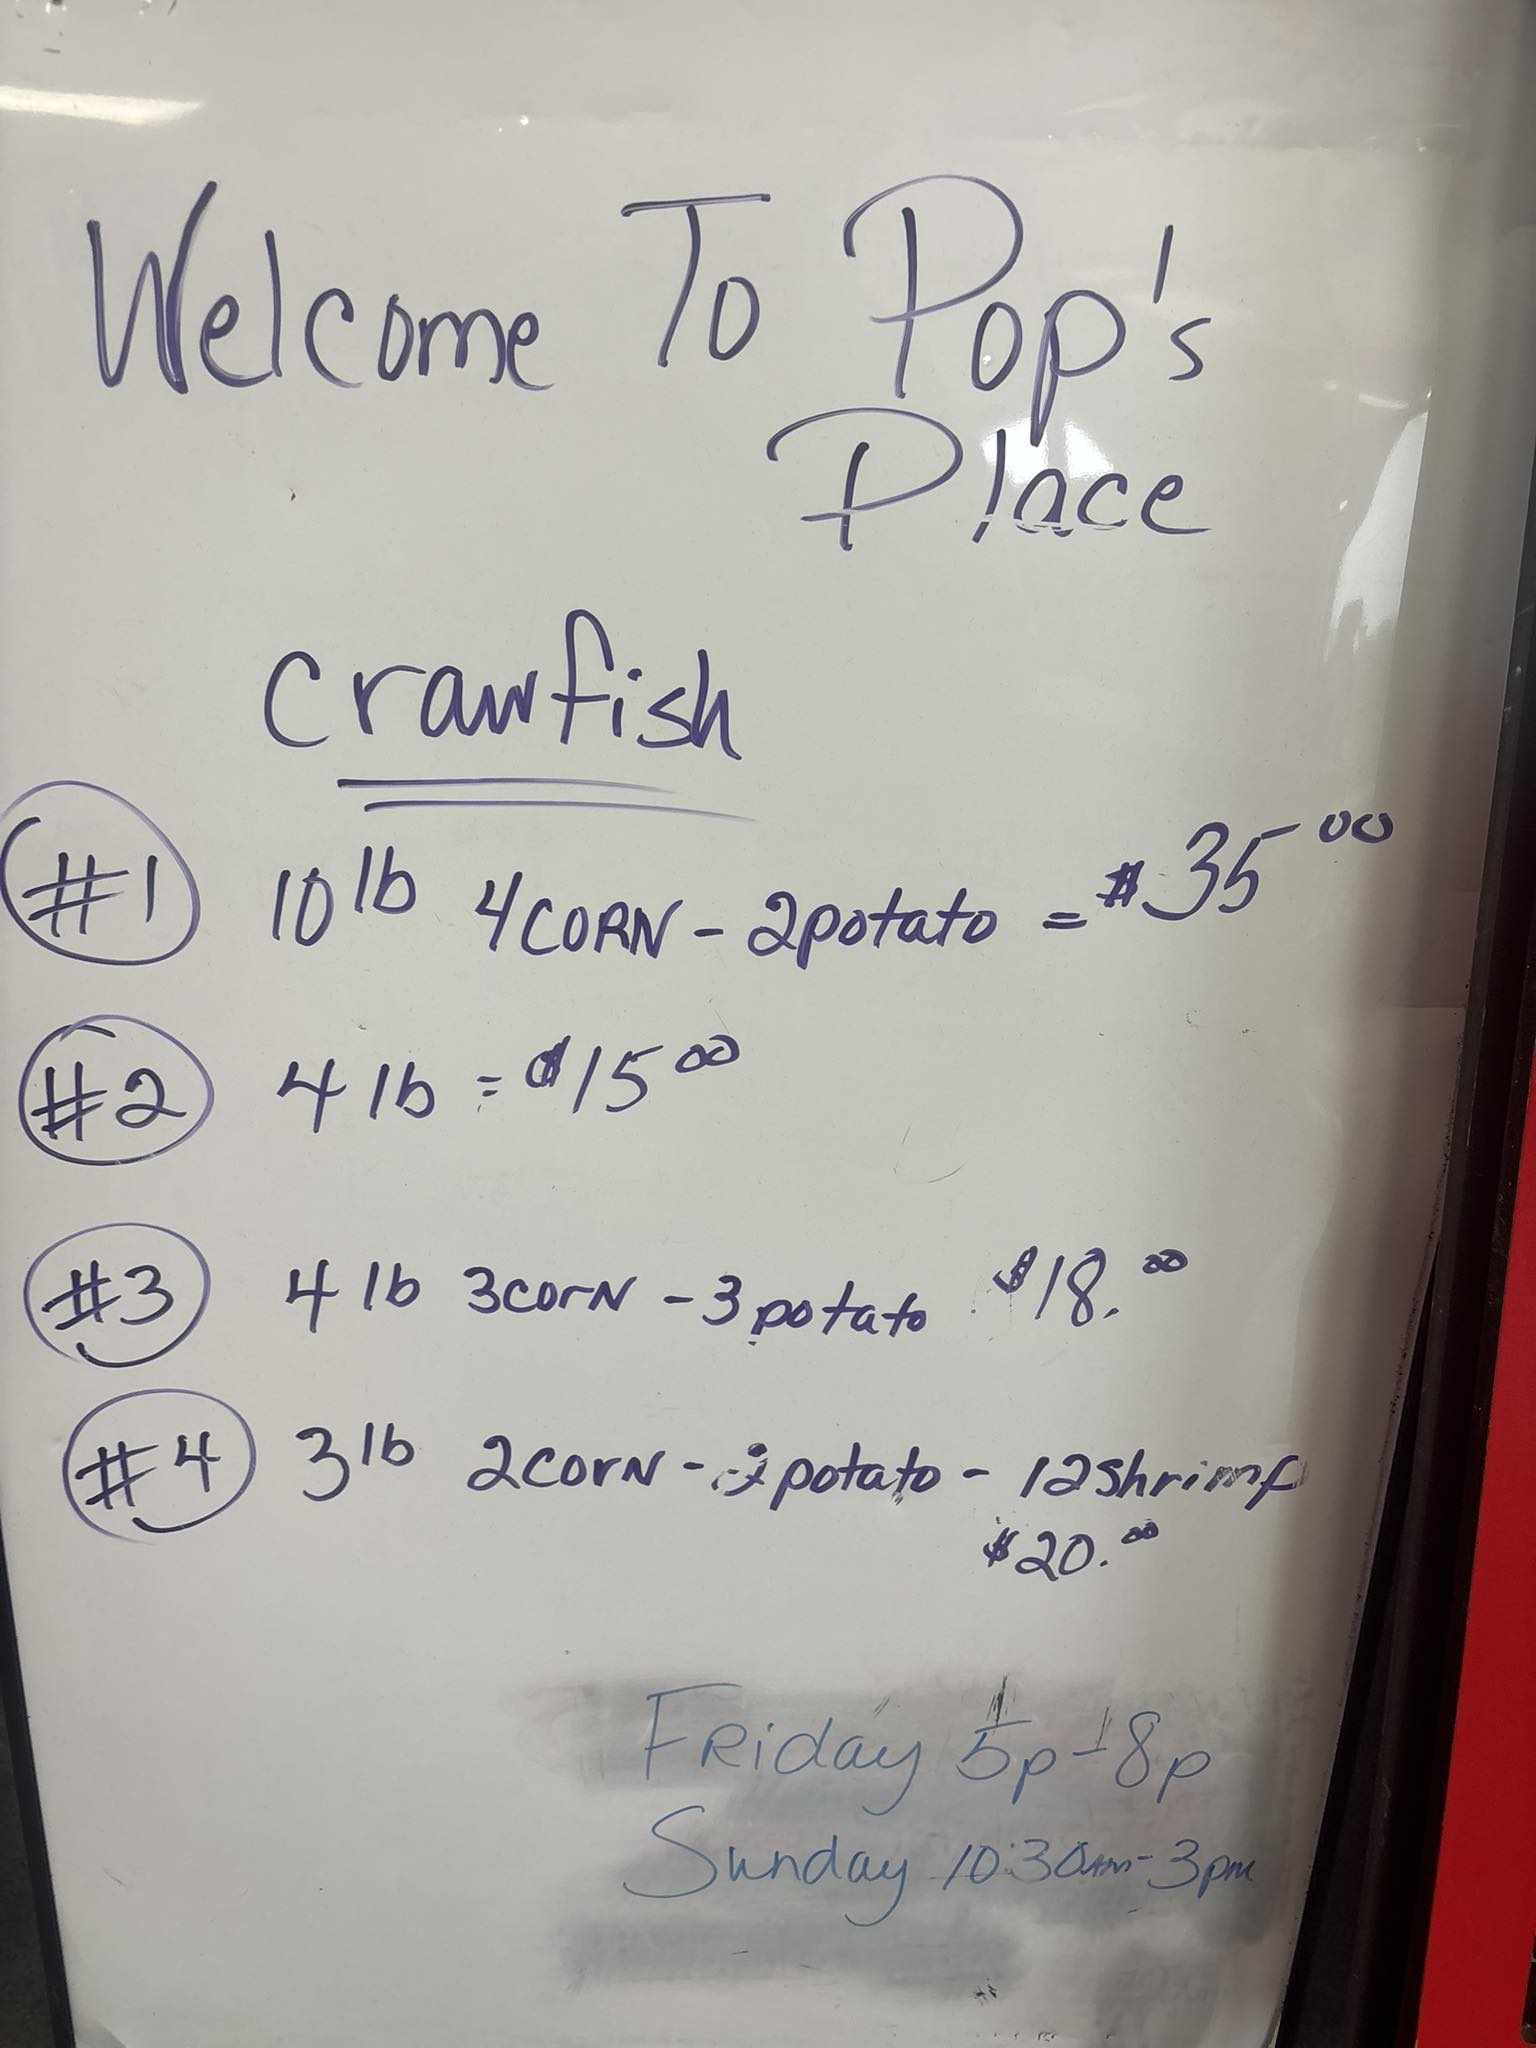 Welcome To Pop's
Place
Crawfish
#1 10 lb 4 CORN - 2 potato = $35 00
#2 4 lb = $15 00
#3 4 lb 3 corN - 3 potato $18.00
#4 3 lb 2 corN - potato - 12 shrimp
$20.00
FRiday 5p-8p
Sunday 10:30am-3pm